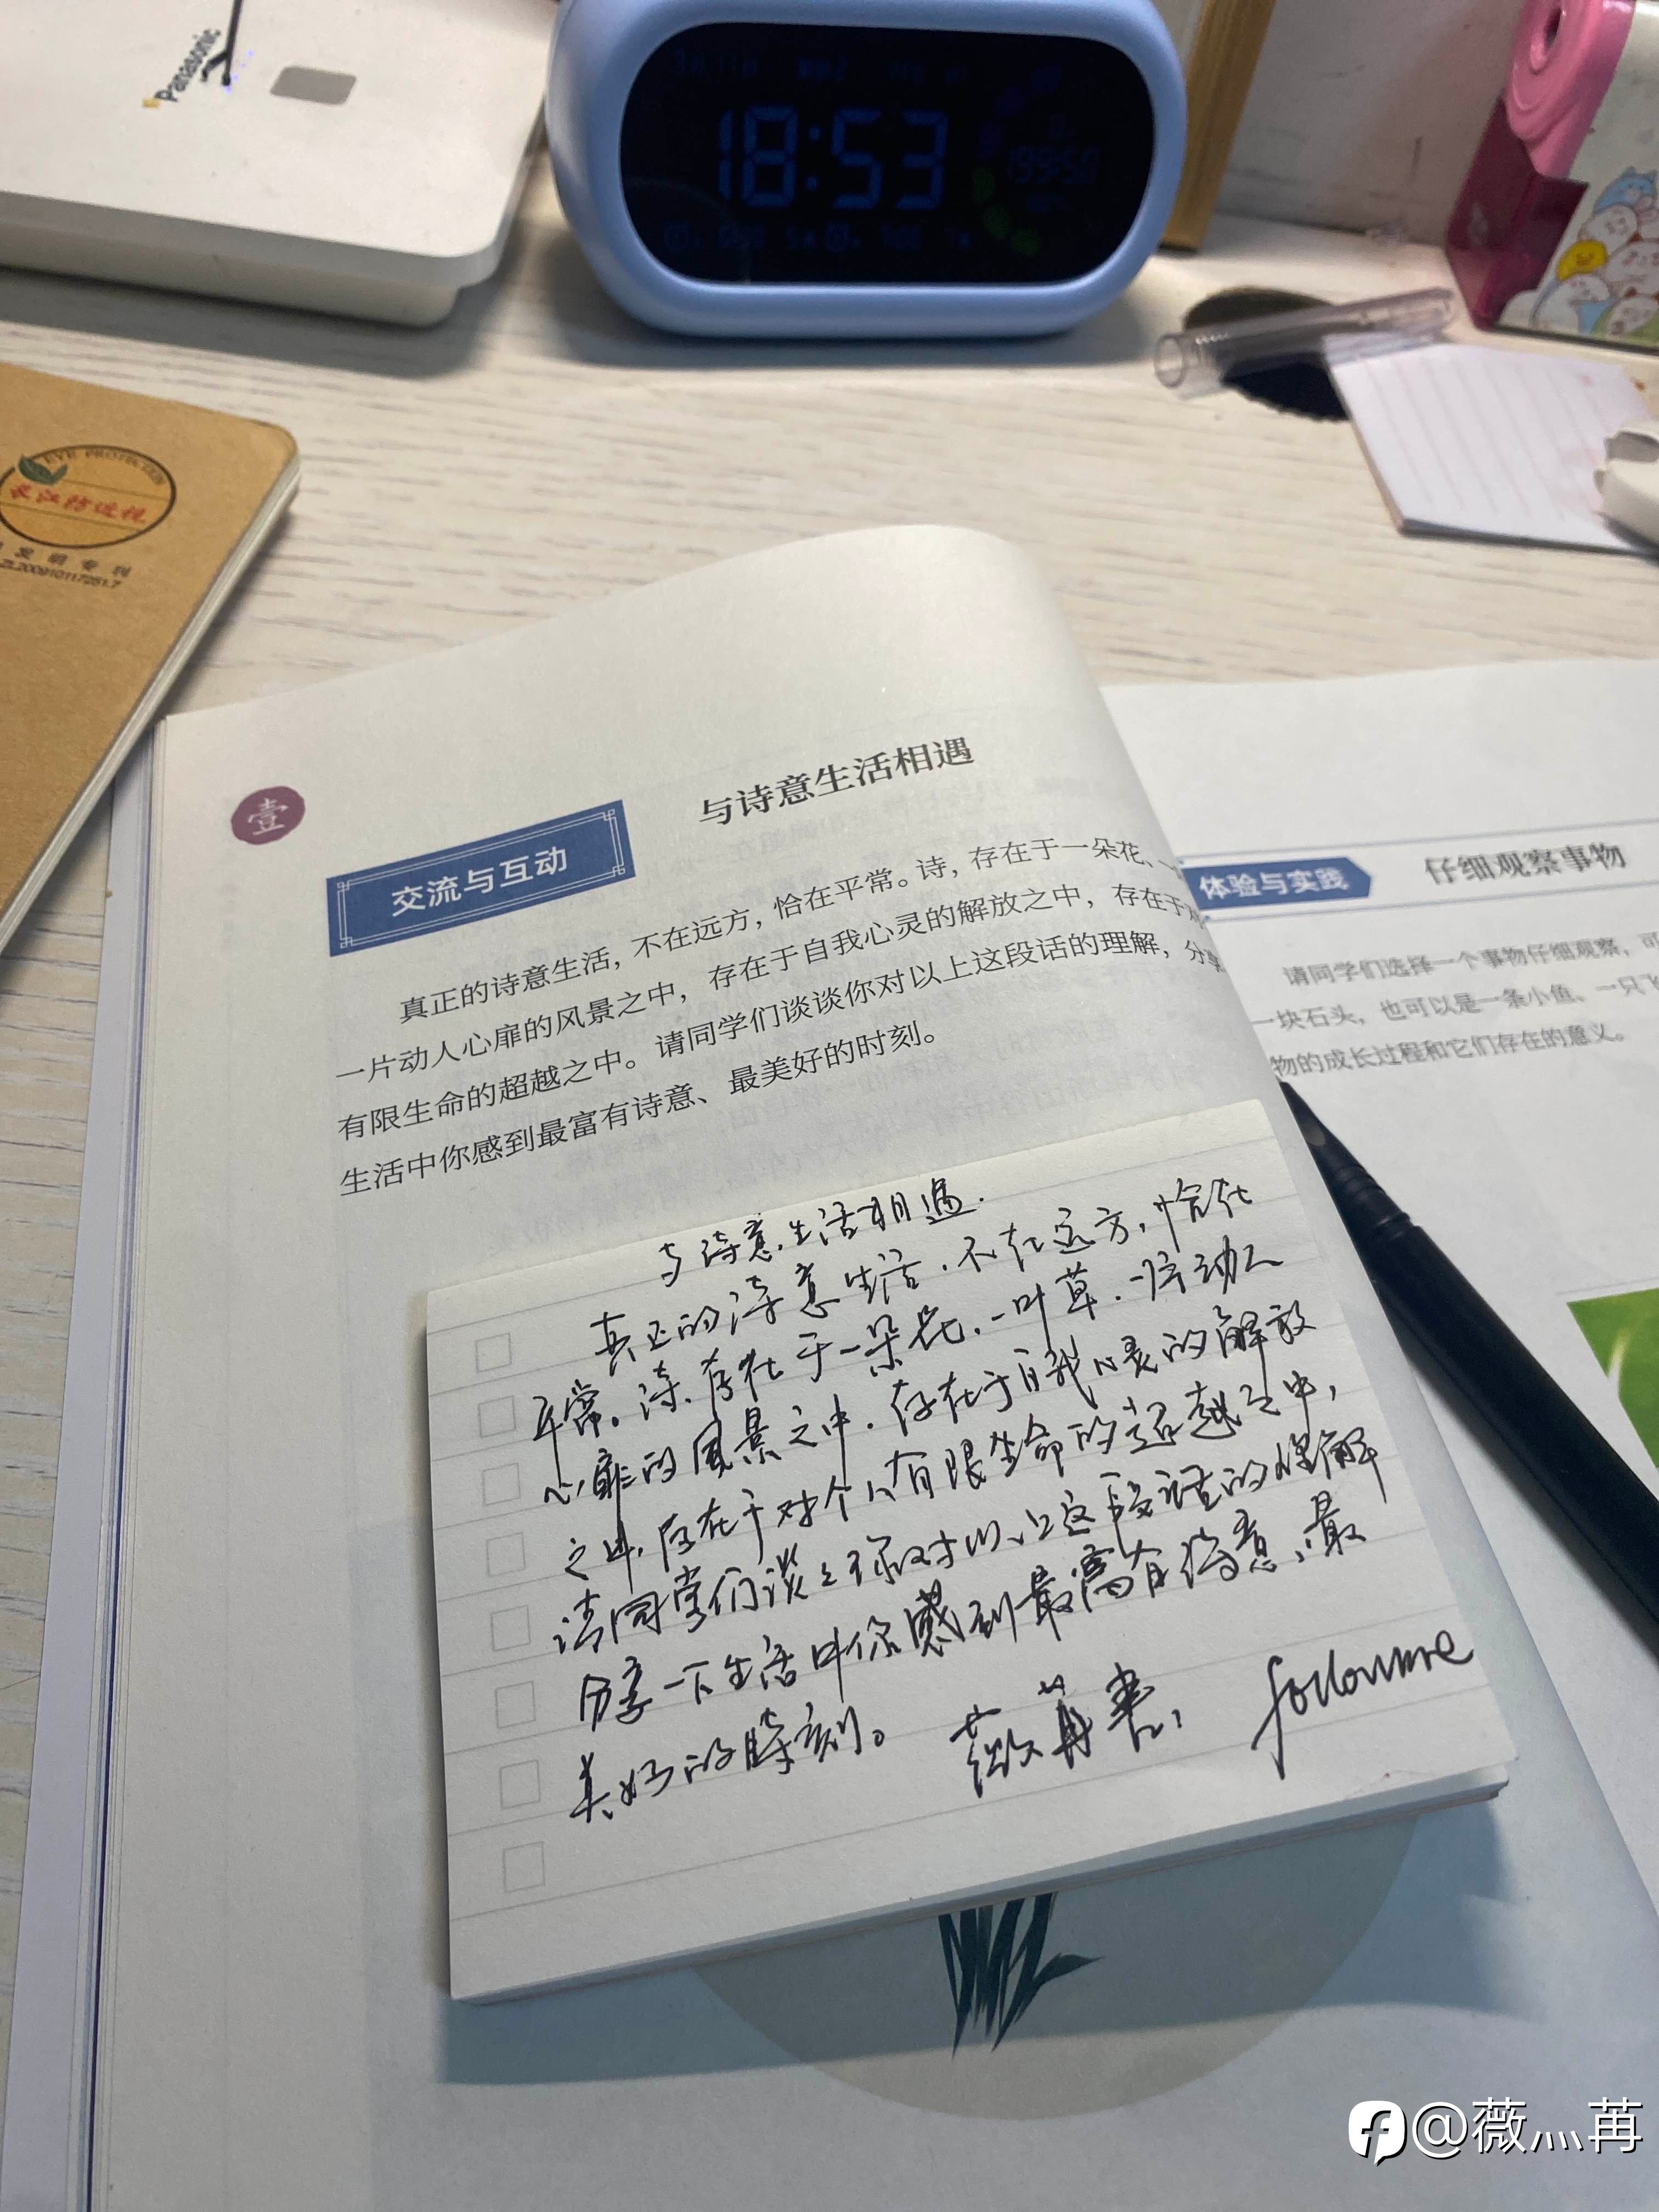 Panasonic
18:53
EYE PROTECTION
长江防近视
发明专利
ZL200910117251.7
壹
交流与互动
与诗意生活相遇
真正的诗意生活，不在远方，恰在平常。诗，存在于一朵花、一
一片动人心扉的风景之中，存在于自我心灵的解放之中，存在于对
有限生命的超越之中。请同学们谈谈你对以上这段话的理解，分享
生活中你感到最富有诗意、最美好的时刻。
体验与实践
仔细观察事物
请同学们选择一个事物仔细观察，可
一块石头，也可以是一条小鱼、一只飞
物的成长过程和它们存在的意义。
与诗意生活相遇.
真正的诗意生活.不在远方,恰在
平常。诗.存在于一朵花.一叶草.一片动人
心扉的风景之中.存在于自我心灵的解放
之中,存在于对个人有限生命的超越之中,
请同学们谈谈你对以上这段话的理解
分享一下生活中你感到最富有诗意、最
美好的时刻。 薇苒书, followme
@薇灬苒